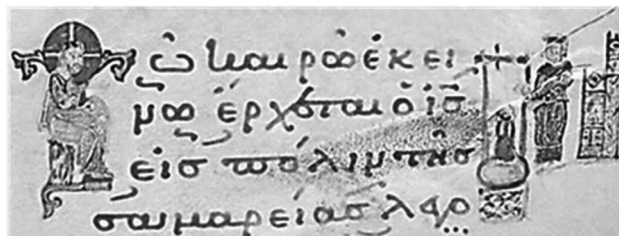 Τῶ καιρῶ ἐκεί
νω ἔρχεται ὁ ἰς
εἰς πόλιν τῆς
σαμαρείας λεγο